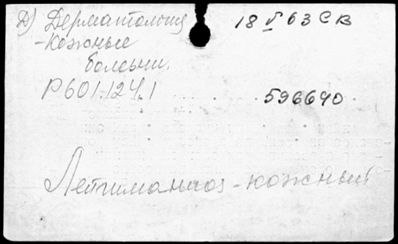 Д) Дерматология 18 V 63 СВ
-кожные
болезни.
Р601.124.1 596640.
Лейшманиоз - кожный